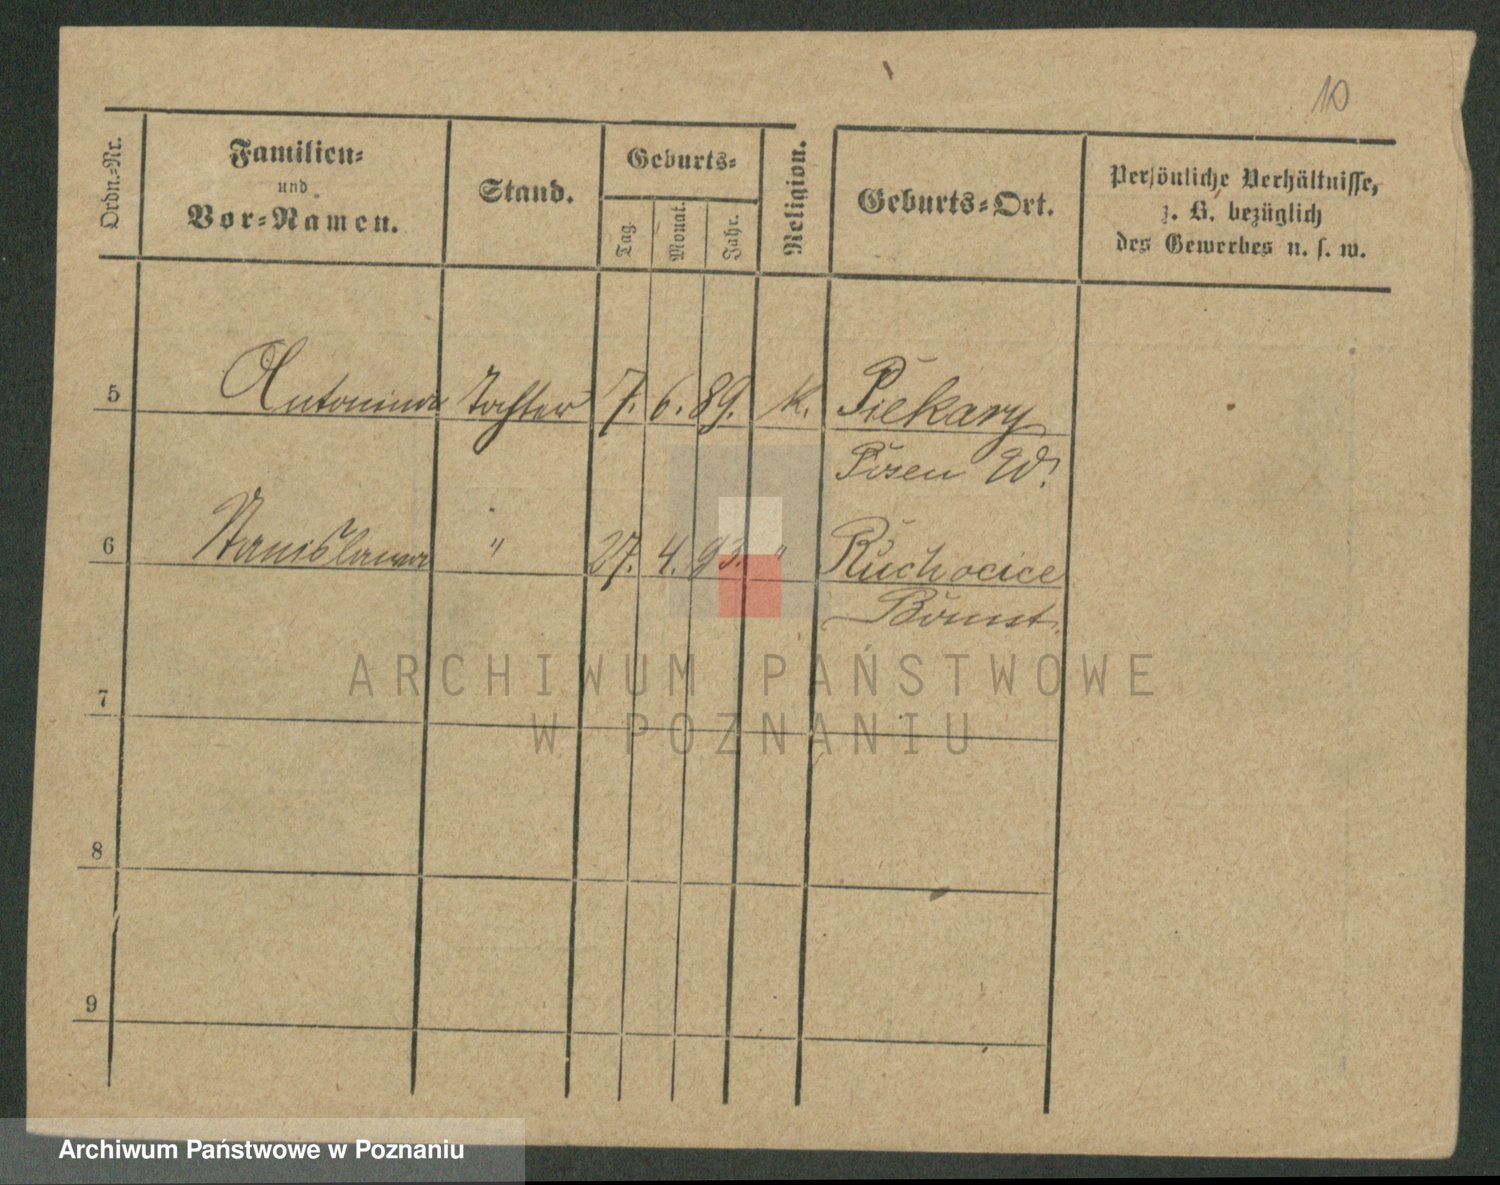 10
Ordn.-Nr.
Familien-
und
Vor-Namen.
Stand.
Geburts-
Tag.
Monat.
Jahr.
Religion.
Geburts-Ort.
Persönliche Verhältnisse,
z. B. bezüglich
des Gewerbes u. s. w.
5 Antonina Tochter 7. 6. 89. k. Piekary
Posen W.
6 Stanislawa " 27. 4. 93. " Ruchocice
Bomst.
7
8
9
ARCHIWUM PAŃSTWOWE
W POZNANIU
Archiwum Państwowe w Poznaniu